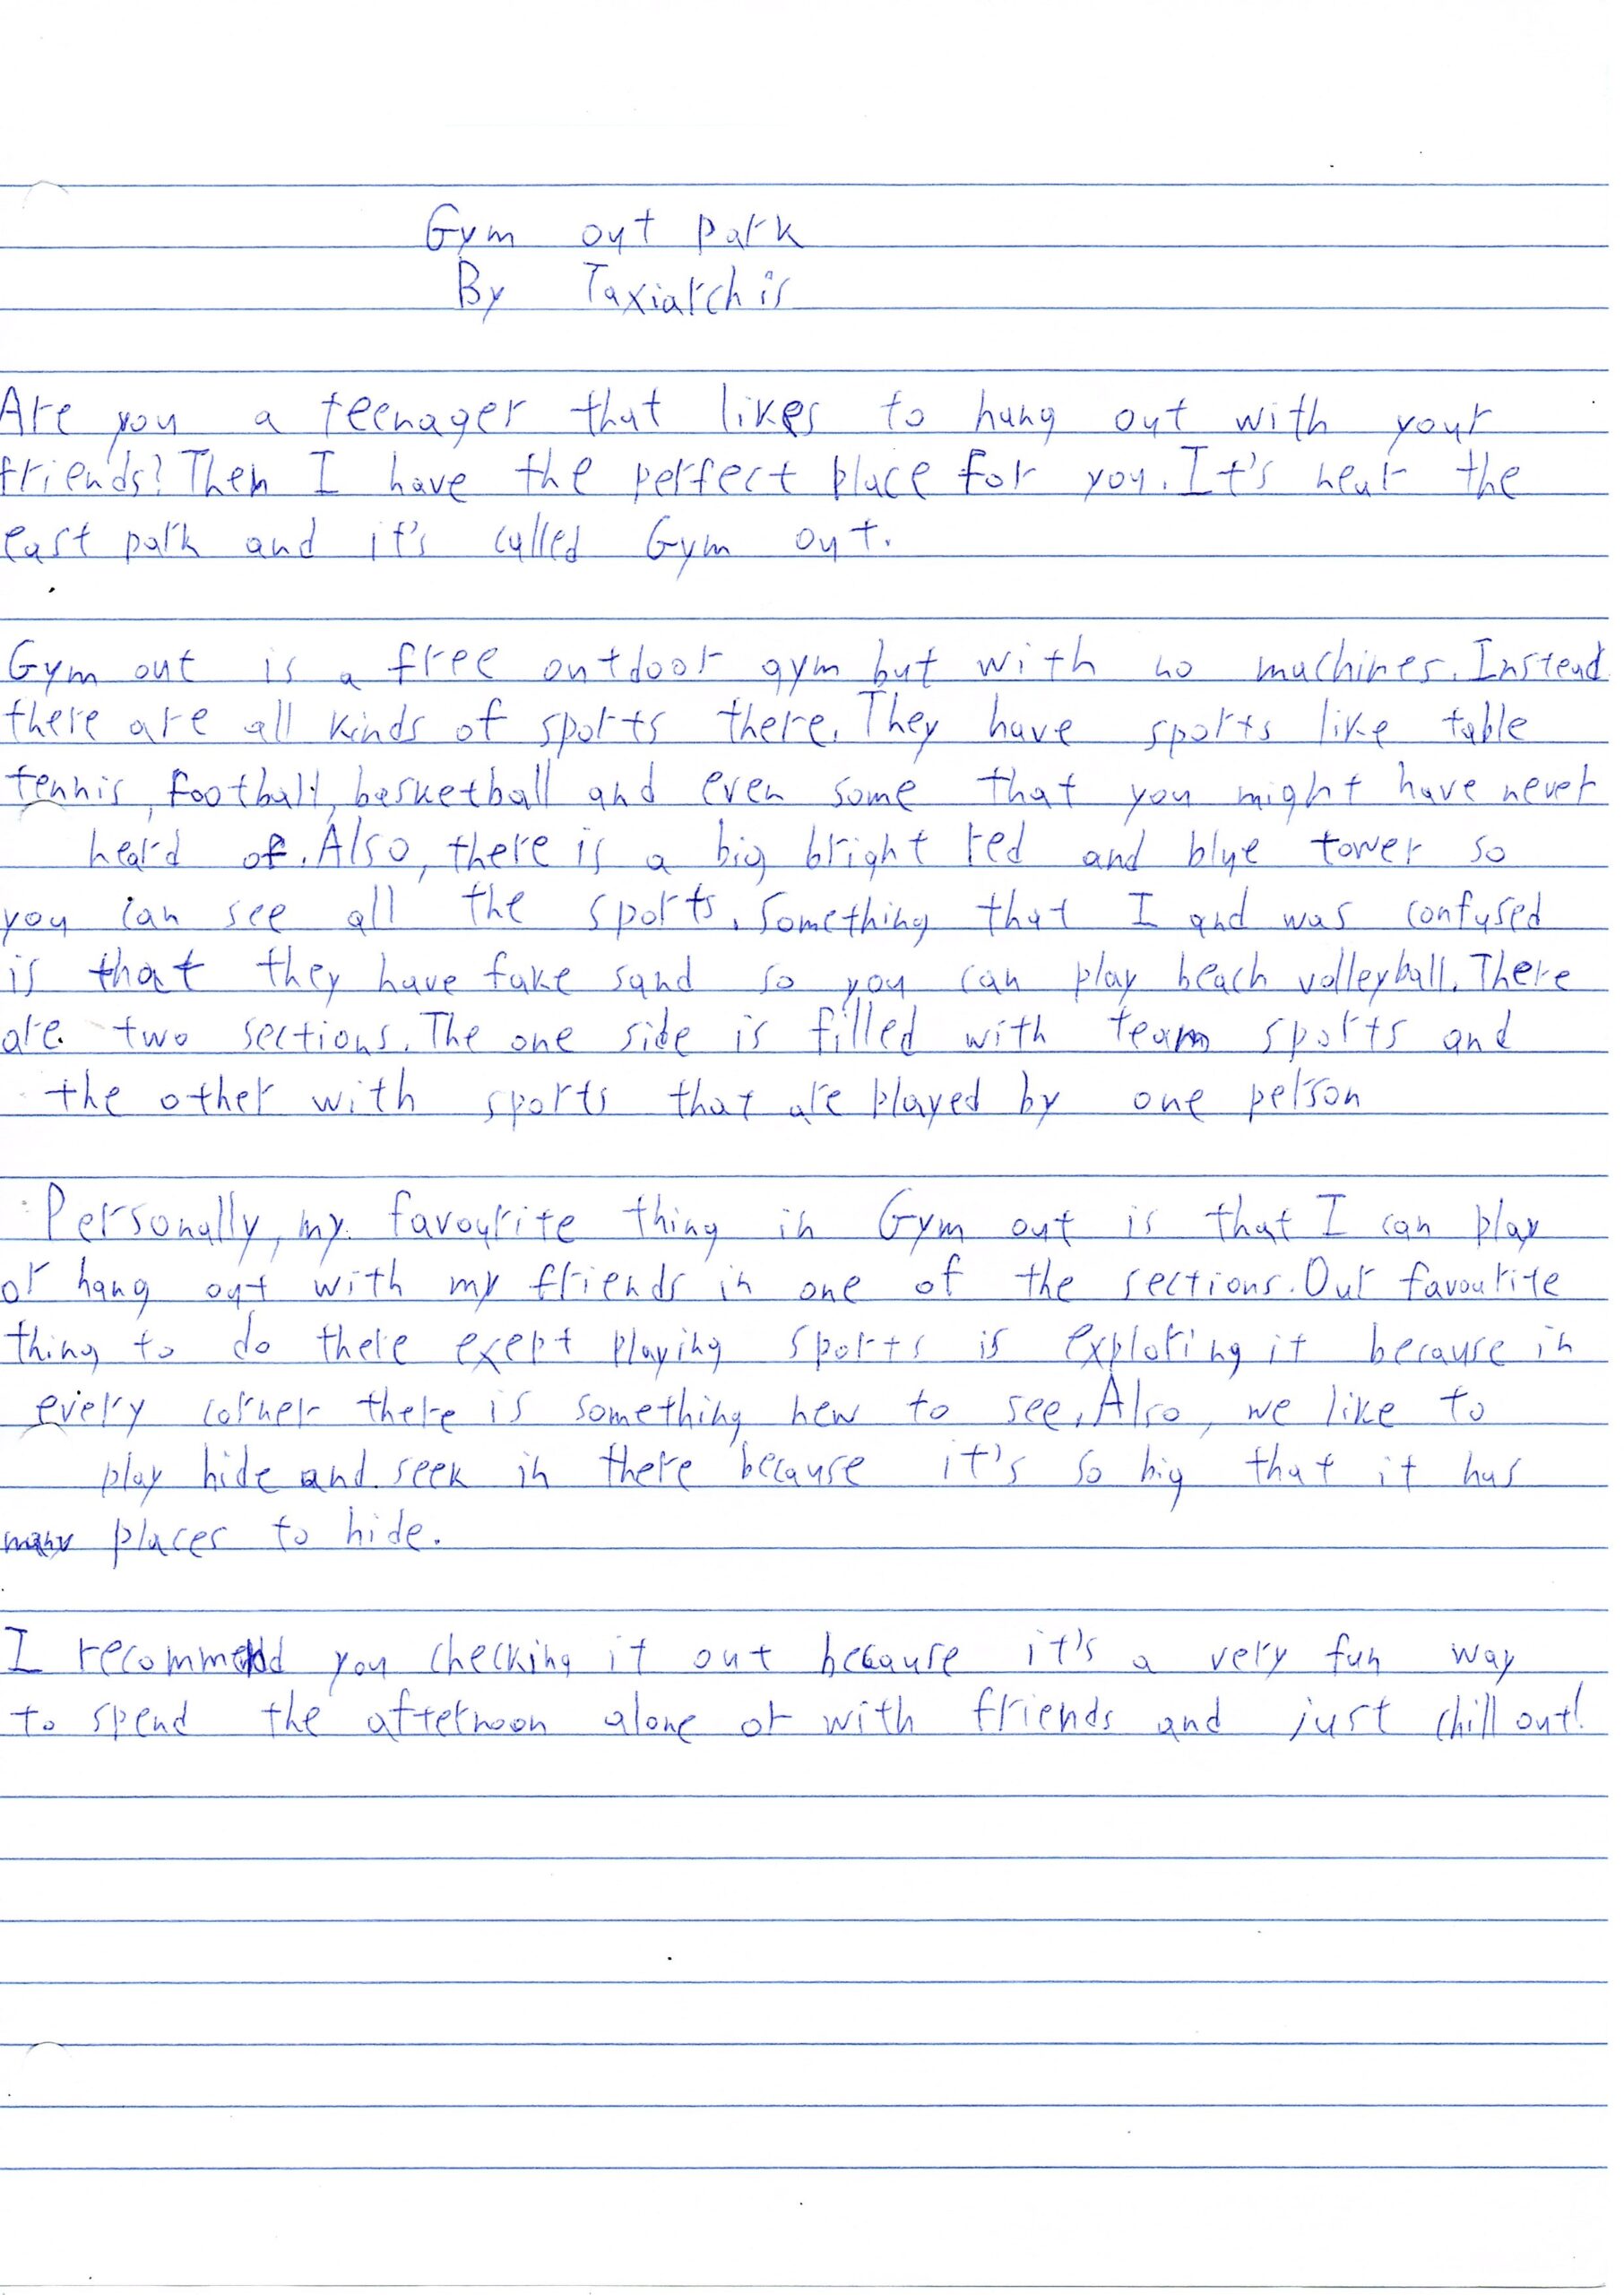 Gym out park
By Taxiarchis
Are you a teenager that likes to hang out with your
friends? Then I have the perfect place for you. It's near the
east park and it's called Gym out.
Gym out is a free outdoor gym but with no machines. Instead
there are all kinds of sports there. They have sports like table
tennis, football, basketball and even some that you might have never
heard of. Also, there is a big bright red and blue tower so
you can see all the sports. Something that I and was confused
is that they have fake sand so you can play beach volleyball. There
are two sections. The one side is filled with team sports and
the other with sports that are played by one person
Personally, my favourite thing in Gym out is that I can play
or hang out with my friends in one of the sections. Our favourite
thing to do there exept playing sports is exploring it because in
every corner there is something new to see. Also, we like to
play hide and seek in there because it's so big that it has
many places to hide.
I recommend you checking it out because it's a very fun way
to spend the afternoon alone or with friends and just chill out!